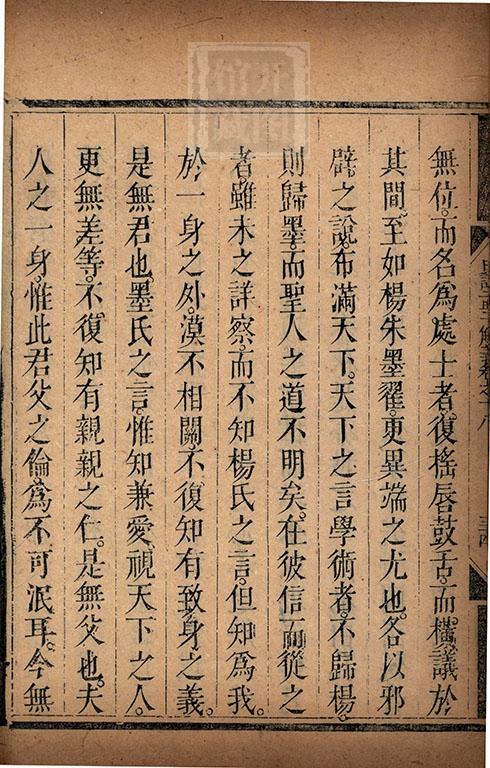 無位。而名爲處士者。復搖唇鼓舌。而橫議於
其間。至如楊朱墨翟。更異端之尤也。各以邪
辟之說。布滿天下。天下之言學術者。不歸楊。
則歸墨。而聖人之道不明矣。在彼信而從之
者。雖未之詳察。而不知楊氏之言。但知爲我。
於一身之外。漠不相關。不復知有致身之義。
是無君也。墨氏之言。惟知兼愛。視天下之人。
更無差等。不復知有親親之仁。是無父也。夫
人之一身。惟此君父之倫。爲不可泯耳。今無